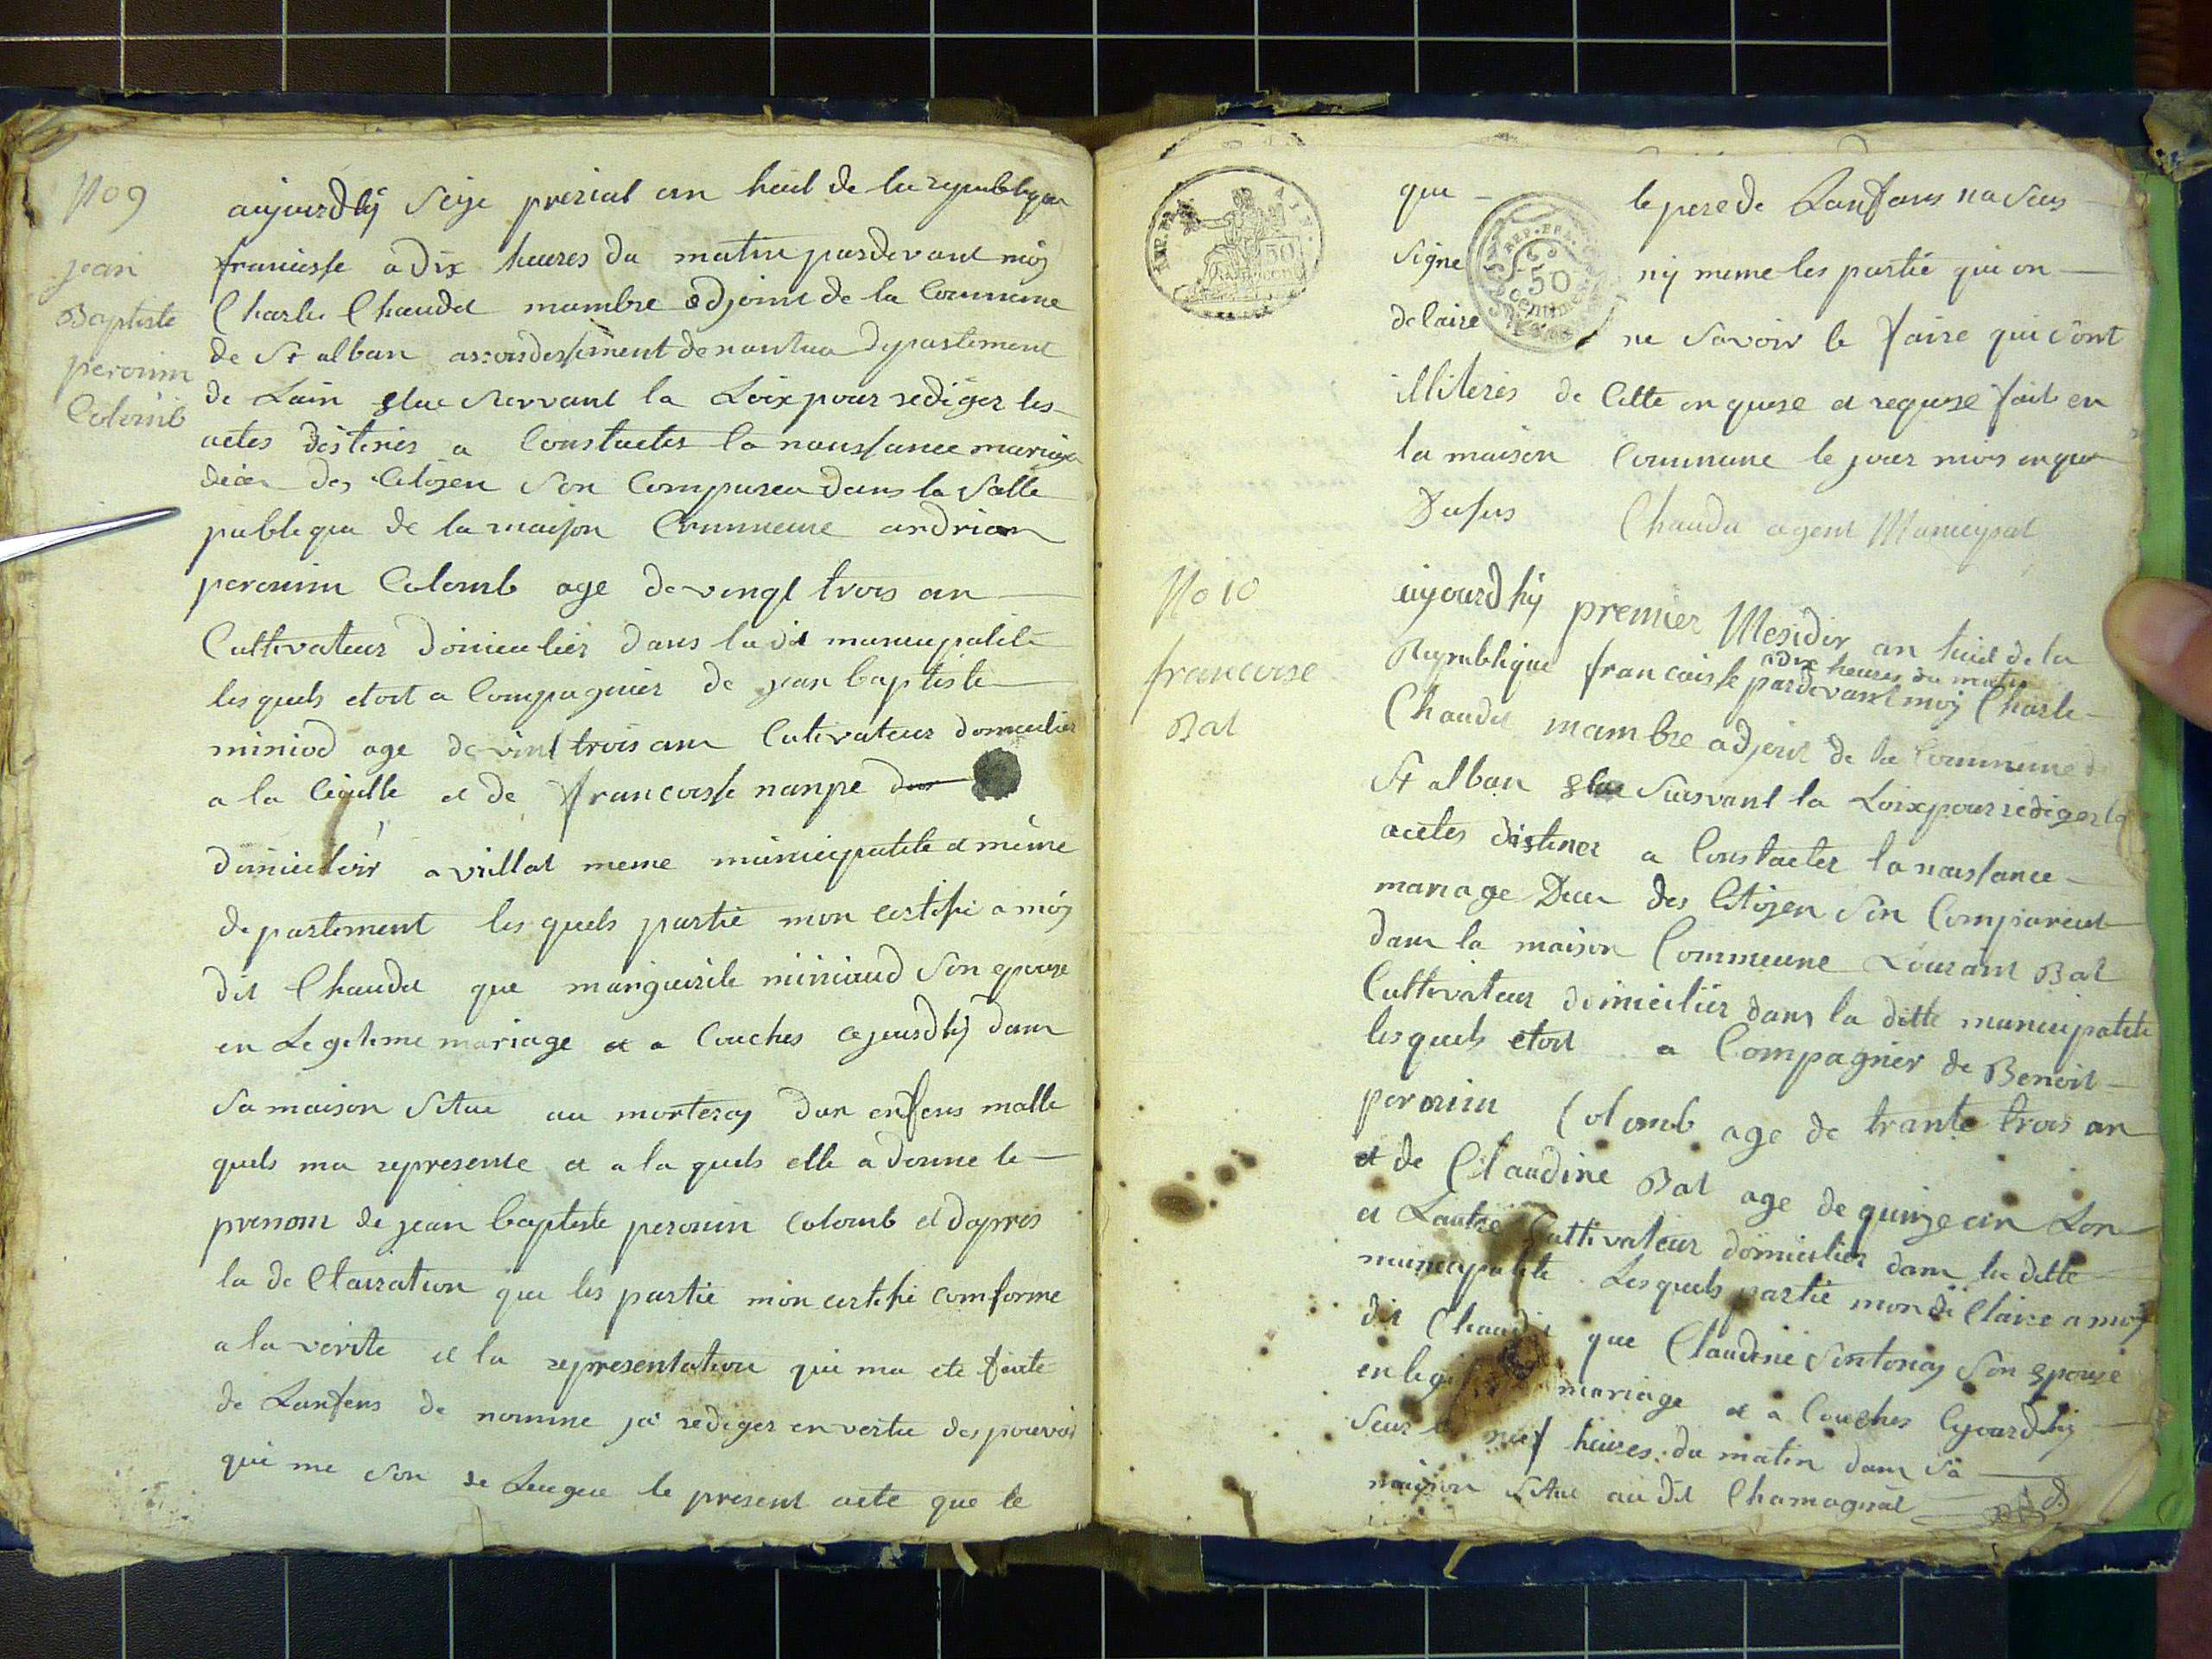 No 9
jean
Baptiste
perouin
Colomb
aujourdhÿ seize prerial an huit de la republique
francisse a dix heures du matin pardevant moÿ
Charle Chaudet mambre adjoint de la Commune
de St alban arrondessiment de nantua departement
de Lain elue survant la Loix pour rediger les
actes destines a Constacter la naussance mariage
deces des Citoyen son Compareu dans la salle
publique de la maison Commeune andrian
perouin Colomb age de vingt trois an
Cultivateur domicilier dans la dit municipalité
les quels etoit a Compagnier de jean baptiste
miniod age de vint trois ann Cutivateur domicilier
a la Ceuille et de francoisse nanpe
domicilier a villat meme municipalite et même
departement les quels partié mon certifié a moÿ
dit Chaudet que marguirite miniaud son epouse
en Legitime mariage et a Couches cejourdhÿ dans
sa maison situe au monteray dun enfens malle
quels ma represente et a la quels elle a donne le
prenom de jean baptiste perouin Colomb et dapres
la de Clairation que les partie mon certifié comforme
a la verite et la representation qui ma ete faite
de Lanfens de nomme jai rediger en vertu des pouvoir
qui me son de Leugue le present acte que le
REP. FRA.
50
REP. FRA.
50
Centimes
que le pere de Lanfans na seus
signe nÿ meme les partié qui on
delaire ne savoir le faire qui sont
illiteres de Cette en quise et requise fait en
la maison Commune le jour mois en que
Dusus Chaudet agent Municipal
No 10
francoise
Bat
aujourdhÿ premier Mesidor an huit de la
Republique francaisse
a dix heures du matin
pardevant moÿ Charle
Chaudet mambre adjoint de la Commune de
St alban elue suisvant la Loix pour rediger les
acetes distiner a Constacter la naussance
mariage Deces des Citoyen son Compareut
dans la maison Commeune Lourant Bat
Cultivateur domicilier dans la ditte municipatite
les quels etoit a Compagnier de Benoit
perouin Colomb age de trante trois an
et de Claudine Bat age de quinze an Lon
et Lautre Cultivateur domicilier dans la ditte
municipalite Les quels partié mon de Claire a moÿ
dit Chaudet que Claudine sontonaÿ son epouse
en legi mariage et a Couches Cejourdhÿ
seur neuf heures du matin dans sa
maison situé au dit Chamagnat